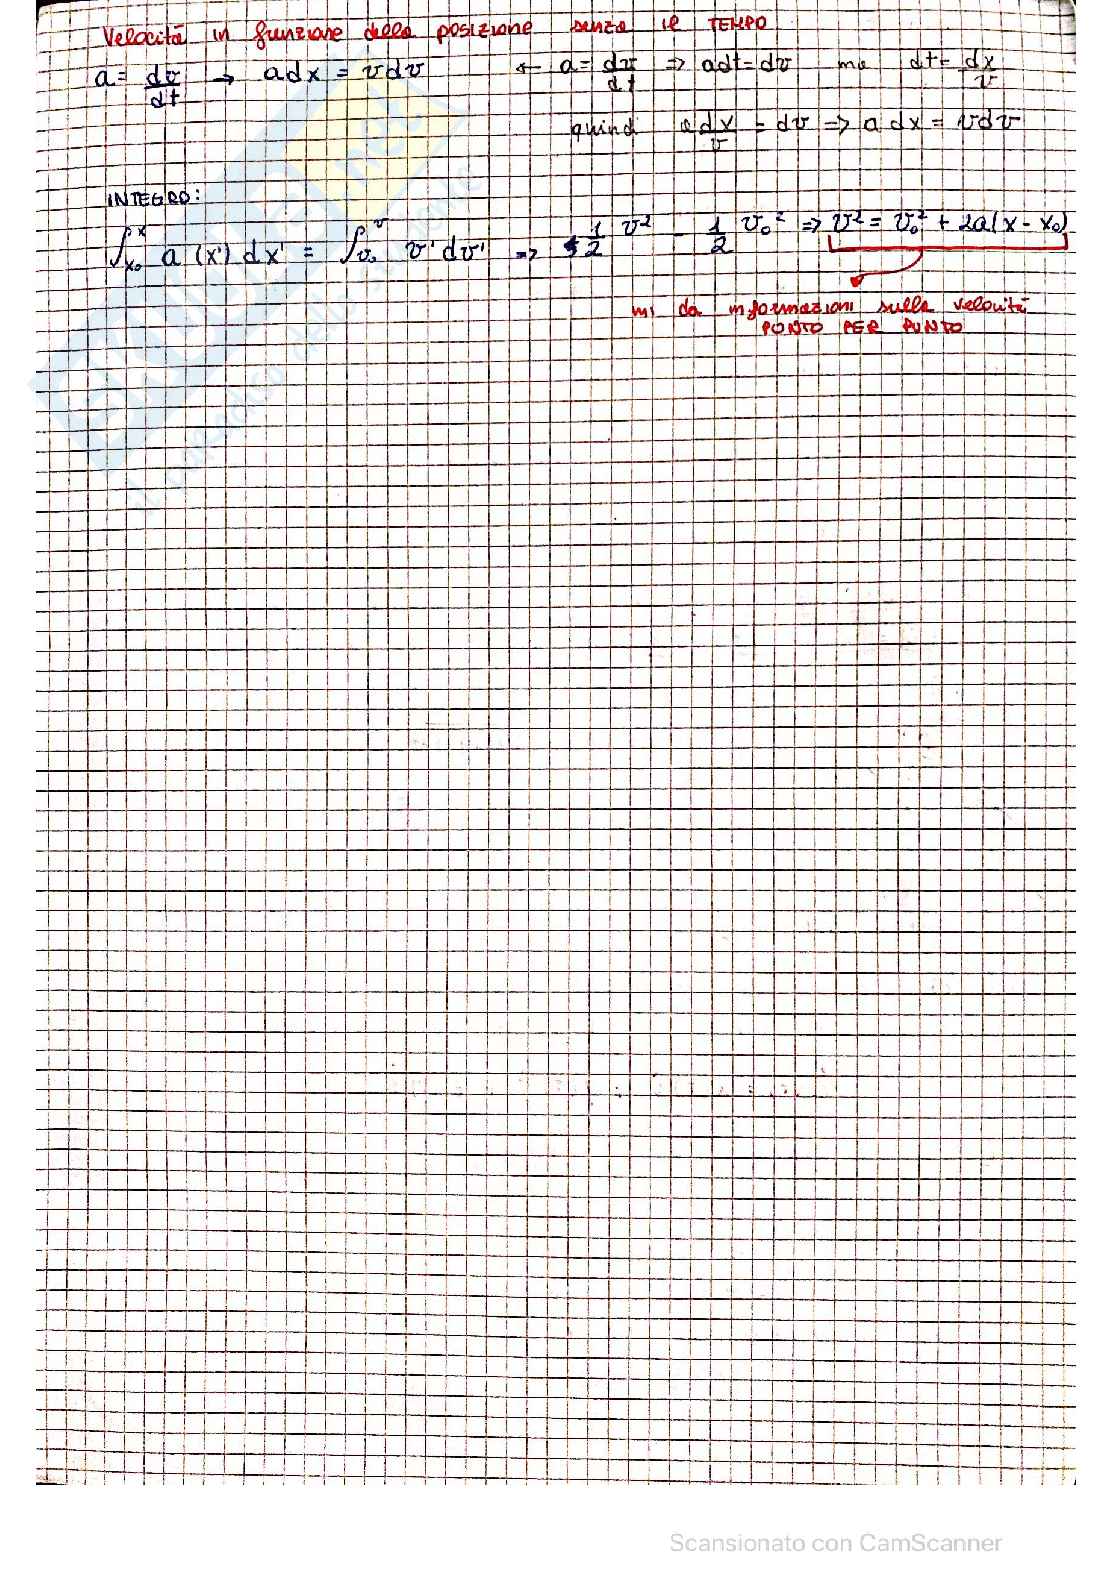 Velocità in funzione della posizione senza il TEMPO
a = dv/dt → a dx = v dv ← a = dv/dt ⇒ a dt = dv ma dt = dx/v
quindi a dx/v = dv ⇒ a dx = v dv
INTEGRO:
∫ₓ₀ˣ a (x') dx' = ∫ᵥ₀ᵛ v' dv' ⇒ 1/2 v² - 1/2 v₀² ⇒ v² = v₀² + 2a(x - x₀)
mi da informazioni sulla velocità
PUNTO PER PUNTO
Scansionato con CamScanner